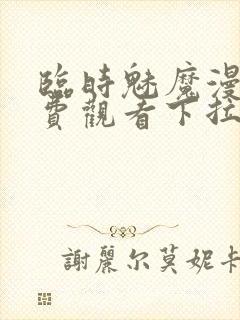 臨時魅魔漫
費觀看下拉
謝麗尔莫妮卡